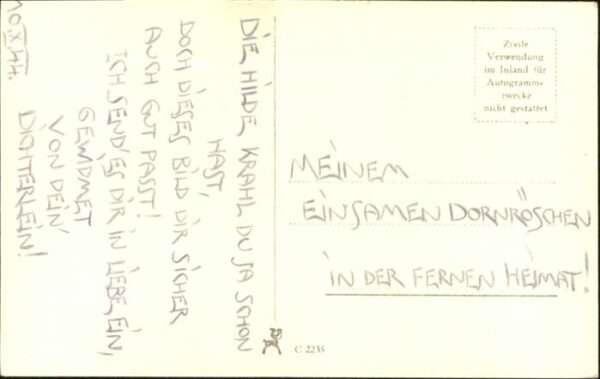 DIE HILDE KRAHL DU JA SCHON
HAST,
DOCH DIESES BILD DIR SICHER
AUCH GUT PASST!
ICH SEND'ES DIR IN LIEBE EIN,
GEWIDMET
VON DEIN'
DICHTERLEIN!
10.X.44.
Zweite
Verwendung
im Inland für
Autogramm-
zwecke
nicht gestattet
MEINEM
EINSAMEN DORNRÖSCHEN
IN DER FERNEN HEIMAT!
C 2235